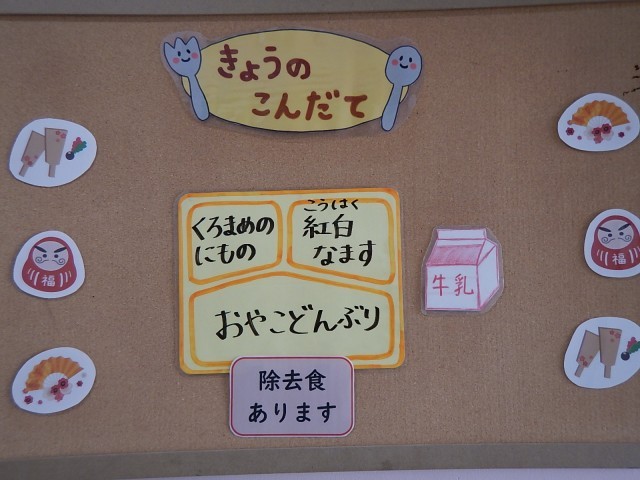 きょうの
こんだて
くろまめの
にもの
こうはく
紅白
なます
おやこどんぶり
牛乳
除去食
あります
福
福